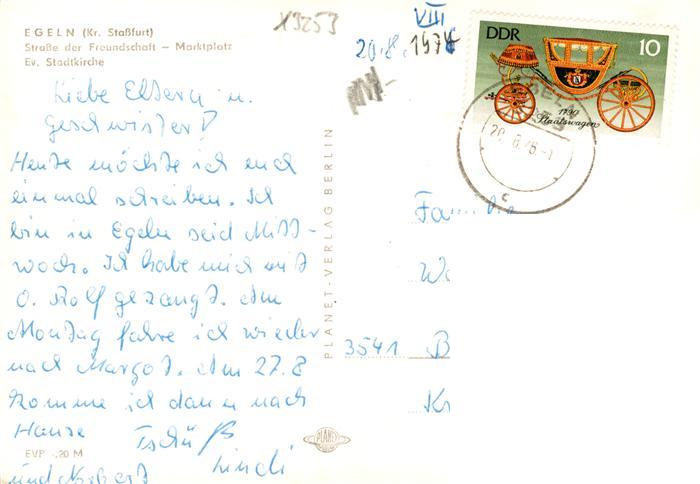 EGELN (Kr. Staßfurt)
Straße der Freundschaft — Marktplatz
Ev. Stadtkirche
X9253
VIII
20.8. 1976
DDR
10
1790
Staatswagen
EGELN
20.8.76-
c
Liebe Eltern u.
Geschwister!
Heute möchte ich euch
einmal schreiben. Ich
bin in Egeln seid Mitt-
woch. Ich habe mich mit
O. Rolf gezangt. Am
Montag fahre ich wieder
nach Margot. Am 27.8
komme ich dann nach
Hause Tschüß
Lindi
und Norbert
EVP -,20 M
PLANET-VERLAG BERLIN
PLANET
Familie
W
3541 B
Kr